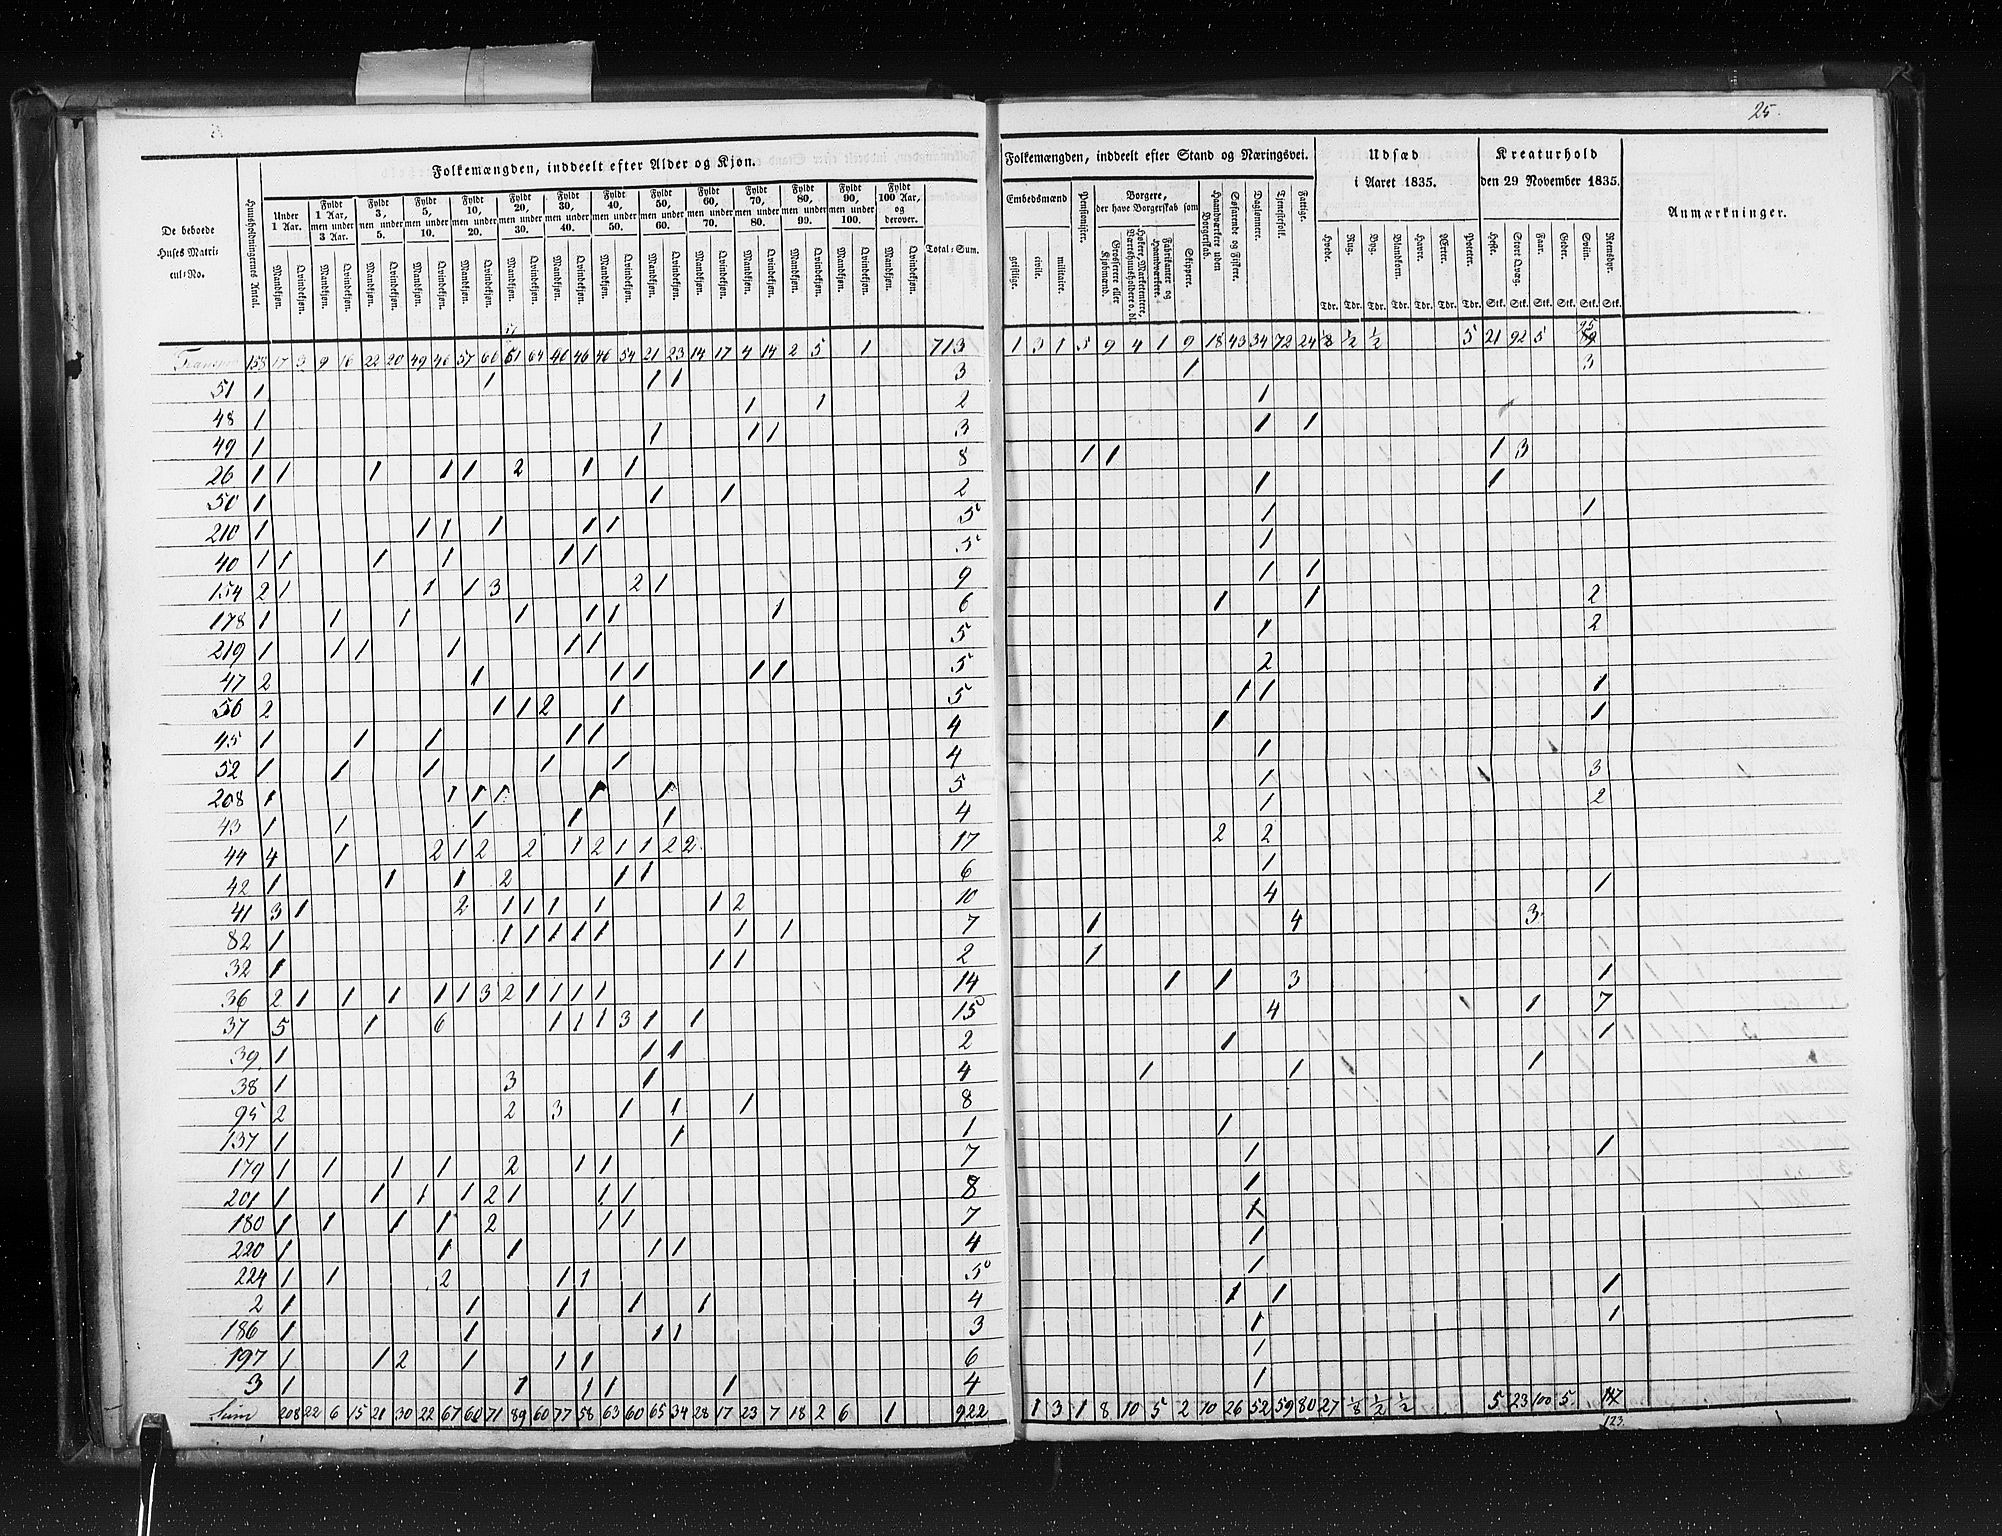 25.
Folkemængden, inddeelt efter Alder og Kjøn.
Folkemængden, inddeelt efter Stand og Næringsvei.
Udsæd
i Aaret 1835.
Kreaturhold
den 29 November 1835.
Anmærkninger.
De beboede
Huses Matri-
cul-No.
Huusholdningernes Antal.
Under 1 Aar.
Fyldt 1 Aar, men under 3 Aar.
Fyldt 3, men under 5.
Fyldt 5, men under 10.
Fyldt 10, men under 20.
Fyldt 20, men under 30.
Fyldt 30, men under 40.
Fyldt 40, men under 50.
Fyldt 50, men under 60.
Fyldt 60, men under 70.
Fyldt 70, men under 80.
Fyldt 80, men under 90.
Fyldt 90, men under 100.
Fyldt 100 Aar, og derover.
Total-Sum.
Mandkjøn. Qvindekjøn. Mandkjøn. Qvindekjøn. Mandkjøn. Qvindekjøn. Mandkjøn. Qvindekjøn. Mandkjøn. Qvindekjøn. Mandkjøn. Qvindekjøn. Mandkjøn. Qvindekjøn. Mandkjøn. Qvindekjøn. Mandkjøn. Qvindekjøn. Mandkjøn. Qvindekjøn. Mandkjøn. Qvindekjøn. Mandkjøn. Qvindekjøn. Mandkjøn. Qvindekjøn. Mandkjøn. Qvindekjøn.
Embedsmænd
geistlige. civile. militaire.
Pensionister.
Borgere,
der have Borgerskab som
Grosserere eller Kjøbmænd.
Høkere, Marketentere, Værtshuusholdere o. dl.
Fabrikanter og Haandværkere.
Skippere.
Haandværkere uden Borgerskab.
Søfarende og Fiskere.
Daglønnere.
Tjenestefolk.
Fattige.
Hvede. Rug. Byg. Blandkorn. Havre. Ærter. Poteter.
Tdr. Tdr. Tdr. Tdr. Tdr. Tdr. Tdr.
Heste. Stort Qvæg. Faar. Geder. Sviin. Rensdyr.
Stk. Stk. Stk. Stk. Stk. Stk.
158 17 3 9 16 22 20 49 46 57 60 51 64 40 46 46 54 21 23 14 17 4 14 2 5 1 713 1 3 1 5 9 4 1 9 18 43 34 72 24 1/8 1/2 1/2 5 21 92 5
51 1 1 1 1 3 1 3
48 1 1 1 2 1
49 1 1 1 1 3 1 1
26 1 1 1 1 1 2 1 1 8 1 1 1 3
50 1 1 1 2 1 1
210 1 1 1 1 1 1 5 1 1
40 1 1 1 1 1 1 5 1
154 2 1 1 1 3 2 1 9 1 1
178 1 1 1 1 1 1 1 6 1 1 2
219 1 1 1 1 1 1 5 1 2
47 2 1 1 1 1 1 5 2
56 2 1 1 2 1 5 1 1 1
45 1 1 1 1 1 4 1 1
52 1 1 1 1 1 4 1
208 1 1 1 1 1 1 5 1 3
43 1 1 1 1 1 4 1 2
44 4 1 2 1 2 2 1 2 1 1 2 2 17 2 2
42 1 1 1 2 1 1 6 1
41 3 1 2 1 1 1 1 1 2 10 4 1
82 1 1 1 1 1 1 1 1 7 1 4 3
32 1 1 1 2 1
36 2 1 1 1 1 1 3 2 1 1 1 1 14 1 1 3 1
37 5 1 6 1 1 1 3 1 1 15 4 1 7
39 1 1 1 2 1 1
38 1 3 1 4 1 1 1
95 2 2 3 1 1 1 8
137 1 1 1 1
179 1 1 1 1 2 1 1 7 1 1
201 1 1 1 1 2 1 1 1 8 1
180 1 1 1 1 2 1 1 7 1
220 1 1 1 1 1 4 1
224 1 1 2 1 1 5 1
2 1 1 1 1 1 4 1 1 1
186 1 1 1 1 3 1 1
197 1 1 2 1 1 1 6 1
3 1 1 1 1 1 4 1
Sum 208 22 6 15 21 30 22 67 60 71 89 60 77 58 63 60 65 34 28 17 23 7 18 2 6 1 922 1 3 1 8 10 5 2 10 26 52 59 80 27 1/8 1/2 1/2 5 23 100 5
123.